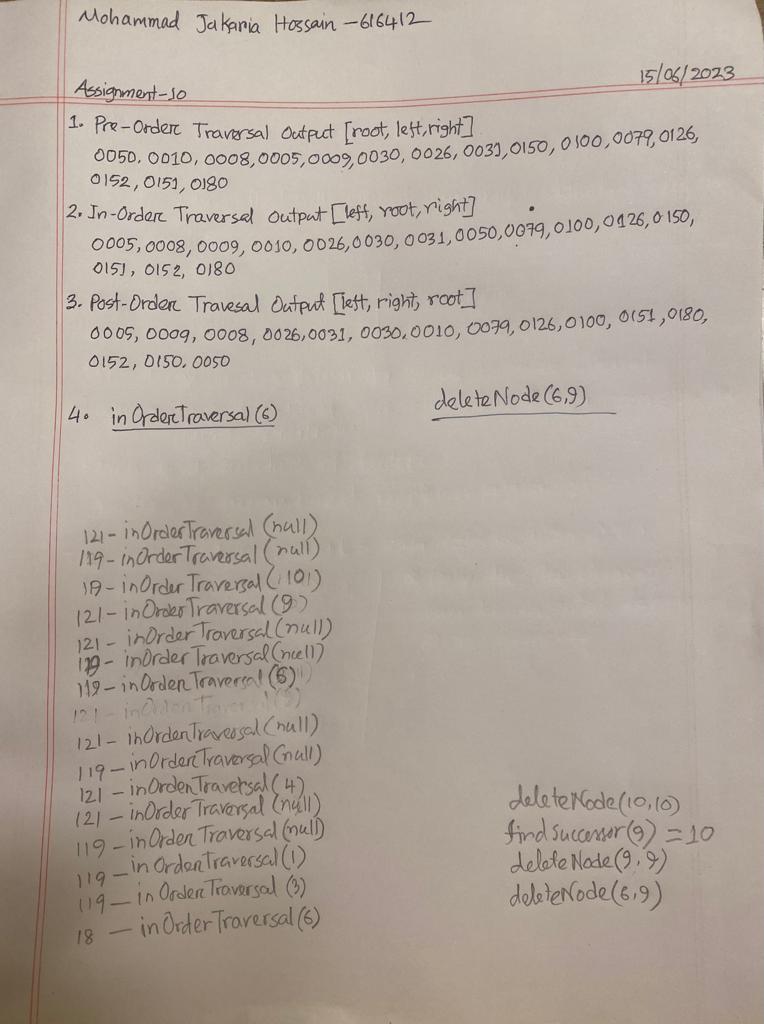 Mohammad Jakaria Hossain - 616412
15/06/2023
Assignment-10
1. Pre-Order Traversal Output [root, left, right]
0050, 0010, 0008, 0005, 0009, 0030, 0026, 0031, 0150, 0100, 0079, 0126,
0152, 0151, 0180
2. In-Order Traversal Output [left, root, right]
0005, 0008, 0009, 0010, 0026, 0030, 0031, 0050, 0079, 0100, 0126, 0150,
0151, 0152, 0180
3. Post-Order Travesal Output [left, right, root]
0005, 0009, 0008, 0026, 0031, 0030, 0010, 0079, 0126, 0100, 0151, 0180,
0152, 0150. 0050
4. inOrderTraversal(6)
deleteNode(6,9)
121 - inOrderTraversal (null)
119 - inOrderTraversal (null)
19 - inOrderTraversal (10)
121 - inOrderTraversal (9)
121 - inOrderTraversal (null)
119 - inOrderTraversal (null)
119 - inOrderTraversal (5)
121 - inOrderTraversal
121 - inOrderTraversal (null)
119 - inOrderTraversal (null)
121 - inOrderTraversal (4)
121 - inOrderTraversal (null)
119 - inOrderTraversal (null)
119 - inOrderTraversal (1)
119 - inOrderTraversal (3)
18 - inOrderTraversal (6)
deleteNode(10,10)
findsuccessor(9) = 10
deleteNode(9,9)
deleteNode(6,9)